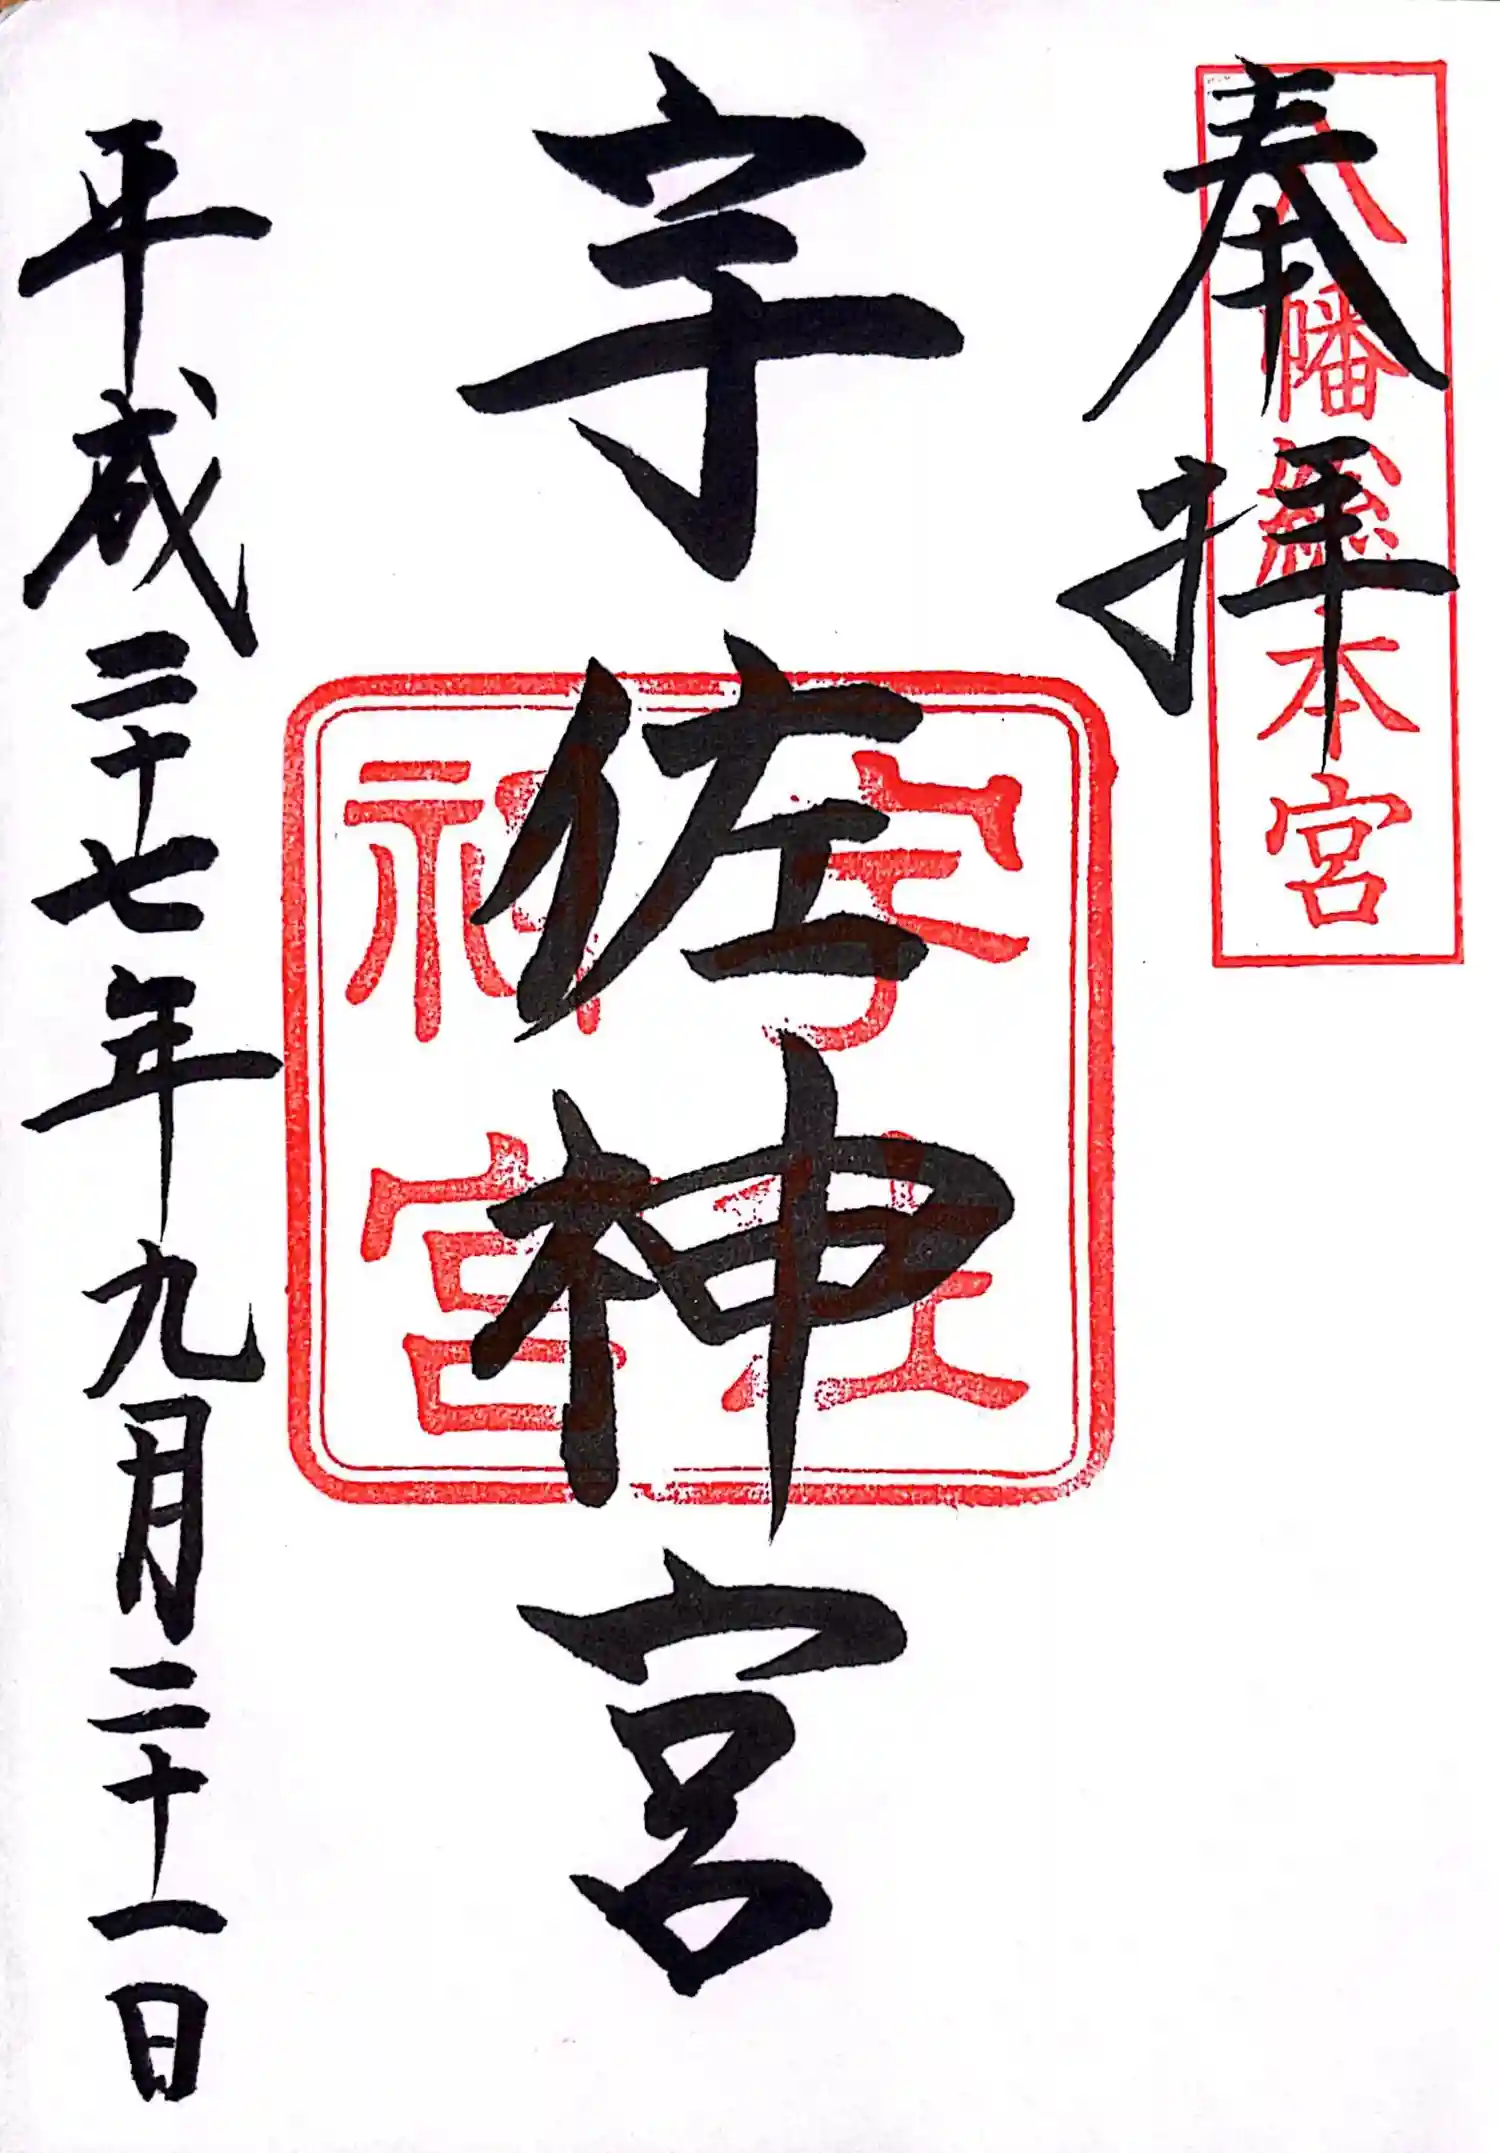 奉拝
八幡総本宮
宇佐神宮
宇佐神宮
平成二十七年九月二十一日